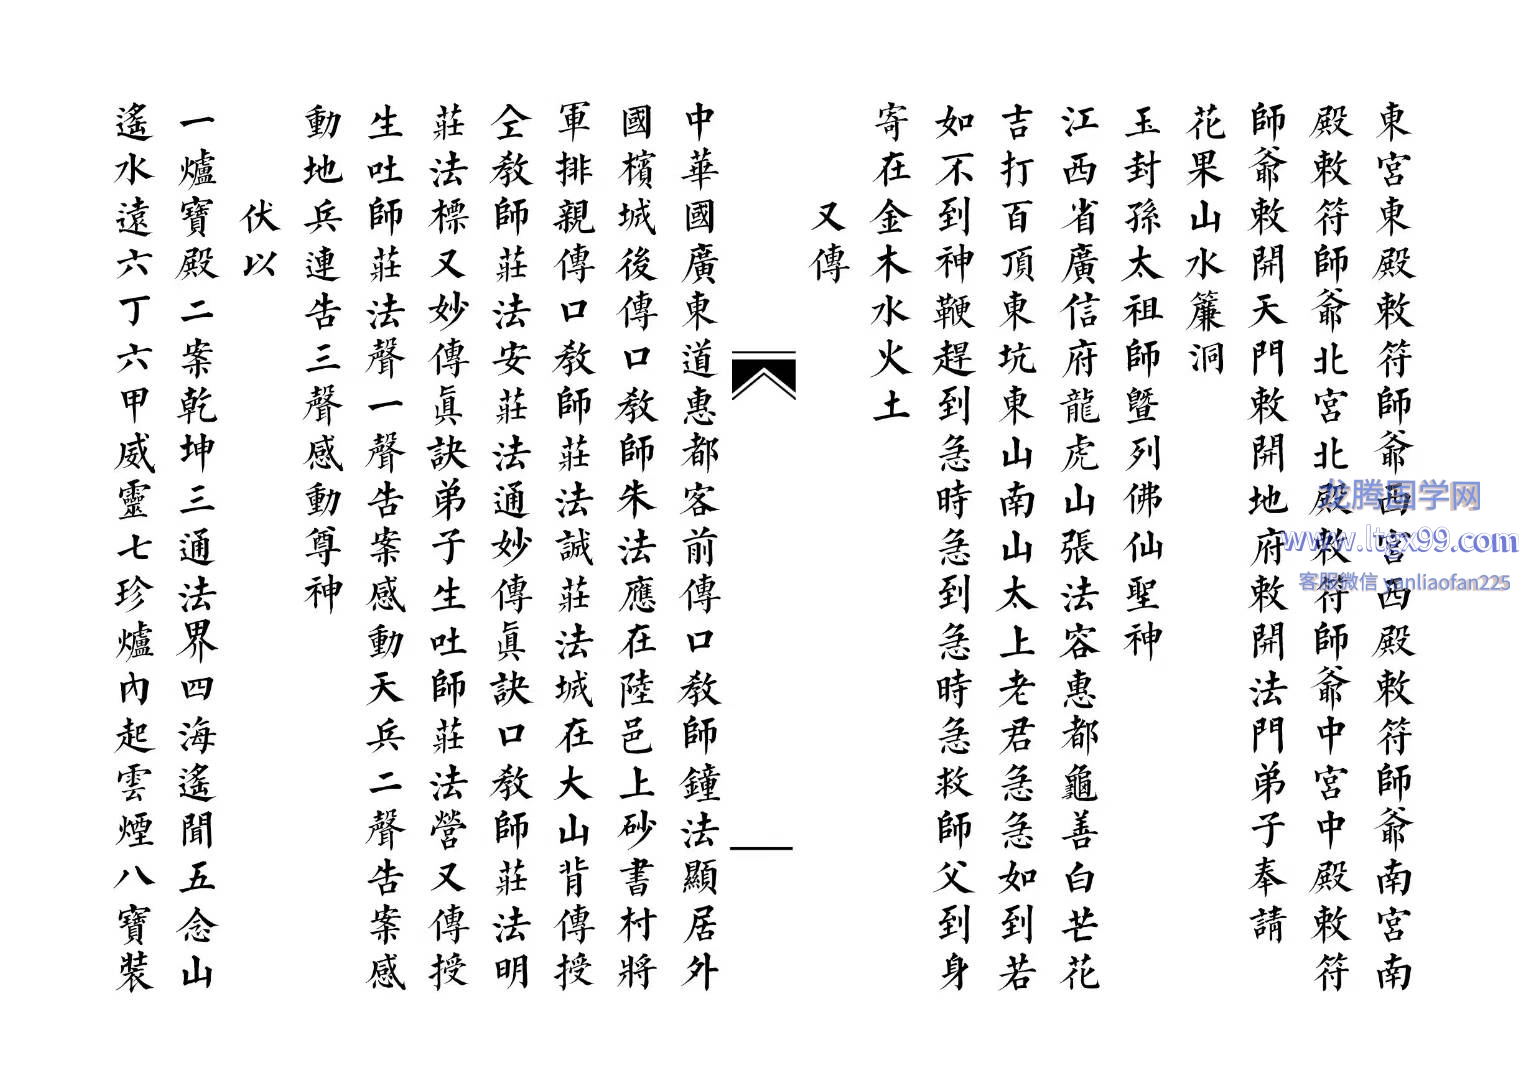 東宮東殿敕符師爺西宮西殿敕符師爺南宮南
殿敕符師爺北宮北殿敕符師爺中宮中殿敕符
師爺敕開天門敕開地府敕開法門弟子奉請
花果山水簾洞
玉封孫太祖師暨列佛仙聖神
江西省廣信府龍虎山張法容惠都龜善白芒花
吉打百頂東坑東山南山太上老君急急如到若
如不到神鞭趕到急時急到急時急救師父到身
寄在金木水火土
又傳
中華國廣東道惠都客前傳口教師鐘法顯居外
國檳城後傳口教師朱法應在陸邑上砂書村將
軍排親傳口教師莊法誠莊法城在大山背傳授
仝教師莊法安莊法通妙傳眞訣口教師莊法明
莊法標又妙傳眞訣弟子生吐師莊法營又傳授
生吐師莊法聲一聲告案感動天兵二聲告案感
動地兵連告三聲感動尊神
伏以
一爐寶殿二案乾坤三通法界四海遙聞五念山
遙水遠六丁六甲威靈七珍爐內起雲煙八寶裝
龙腾国学网
www.ltgx99.com
客服微信 yanliaofan225